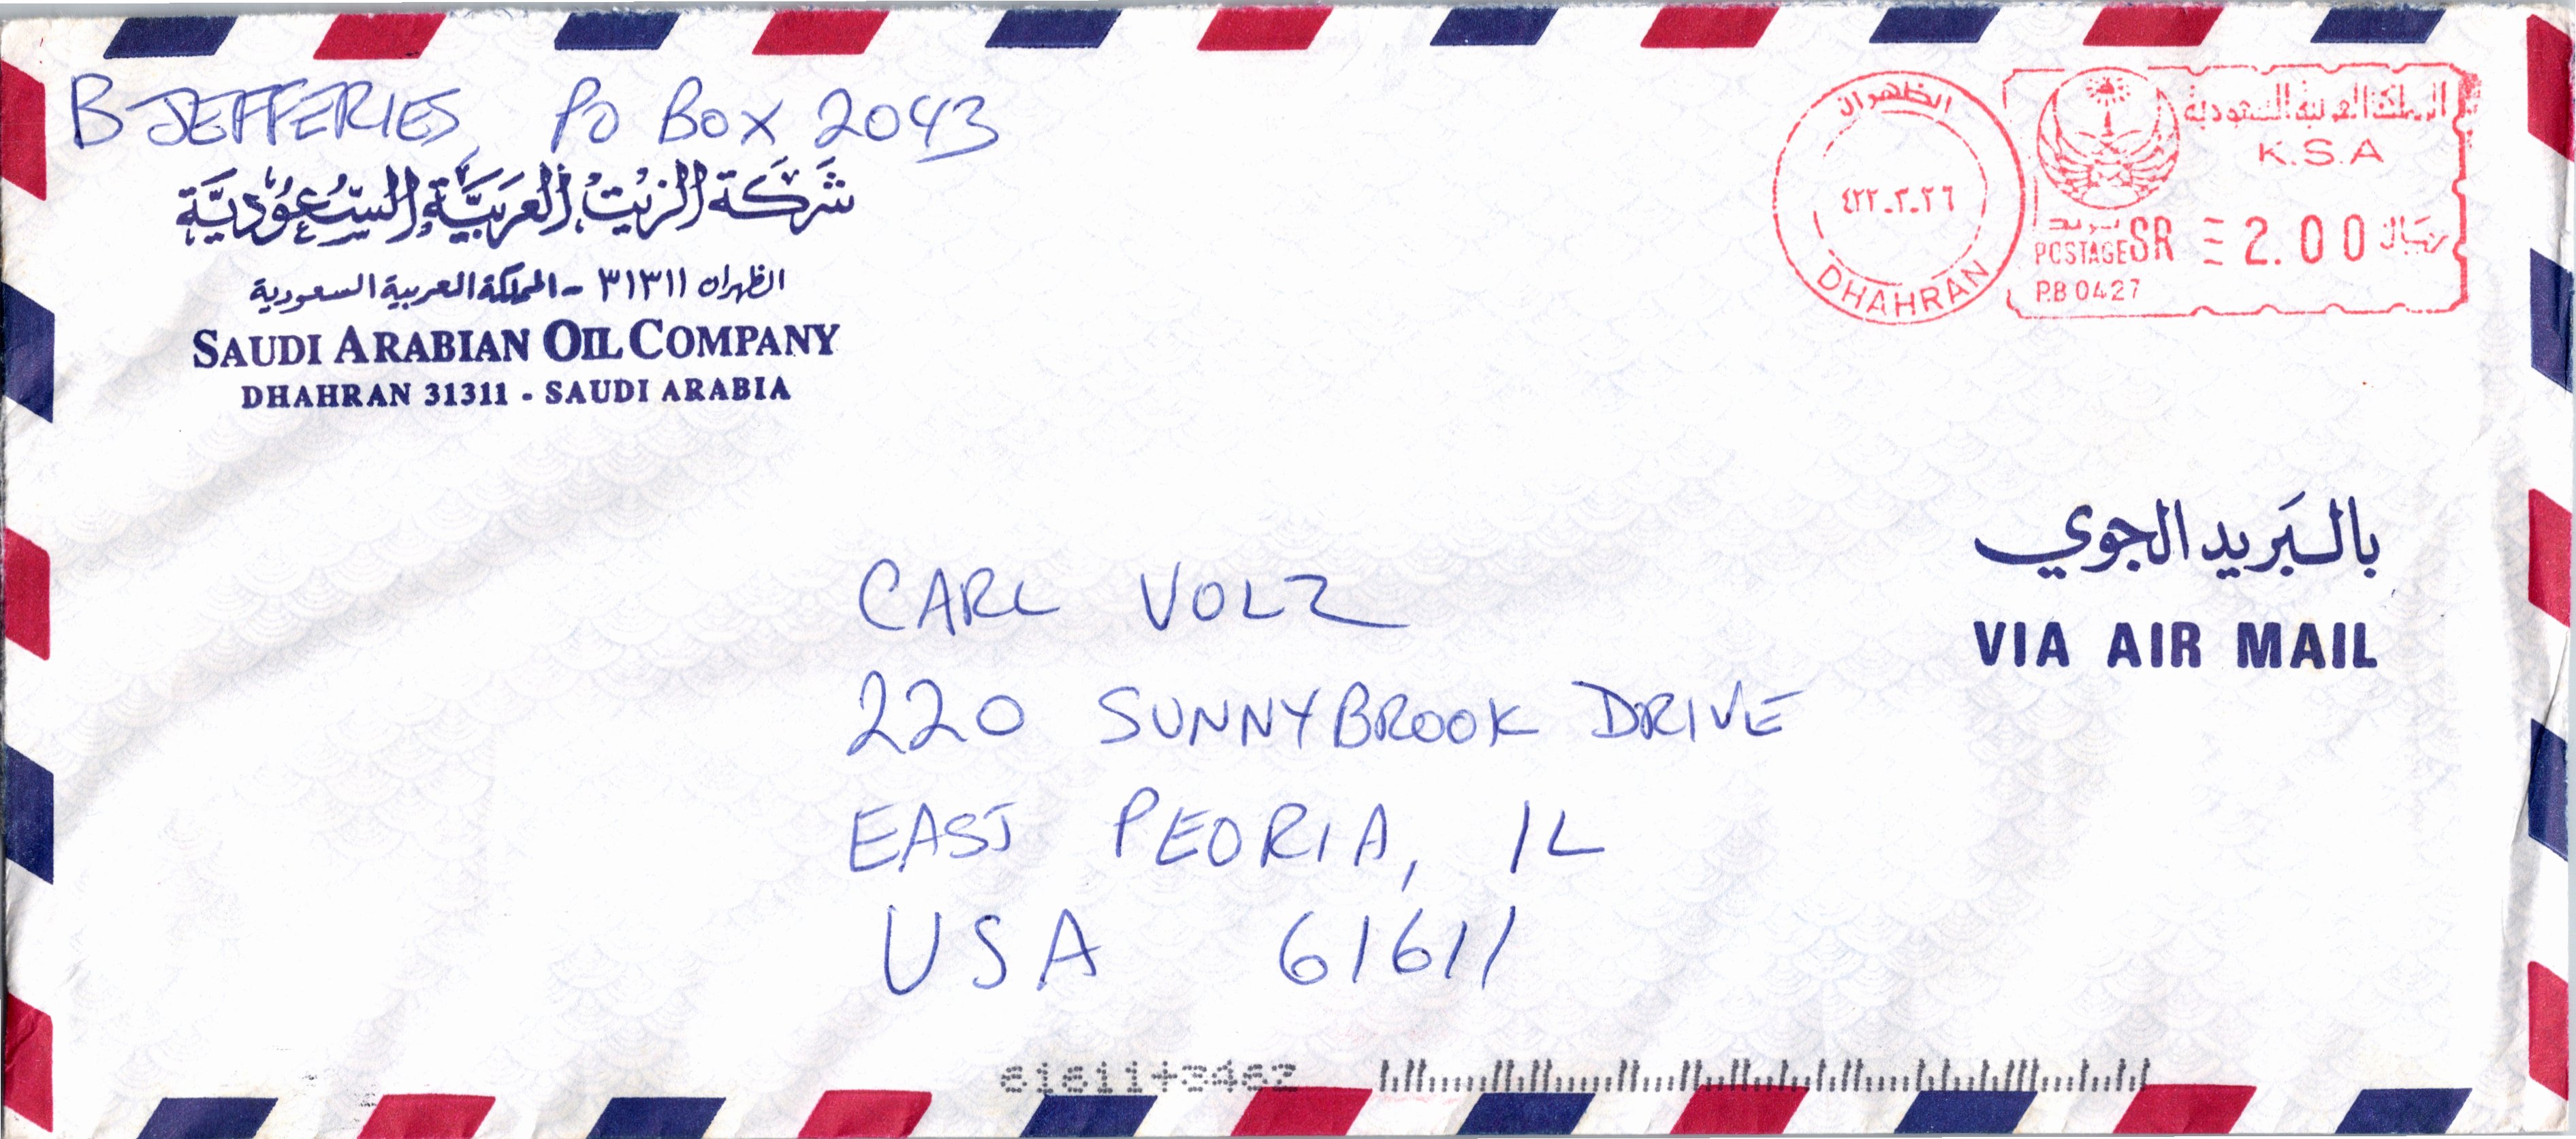 B JEFFERIES, PO BOX 2043
شَركَة الزيْت العَرَبيَّة السّعُوديَّة
الظهران ٣١٣١١ - المملكة العربية السعودية
SAUDI ARABIAN OIL COMPANY
DHAHRAN 31311 - SAUDI ARABIA
الظهران
٤٢٢.٢.٢٦
DHAHRAN
المملكة العربية السعودية
K.S.A
بريد
POSTAGE SR 2.00 ريال
P.B 0427
بالبَريد الجوي
VIA AIR MAIL
CARL VOLZ
220 SUNNYBROOK DRIVE
EAST PEORIA, IL
USA 61611
61611+3462